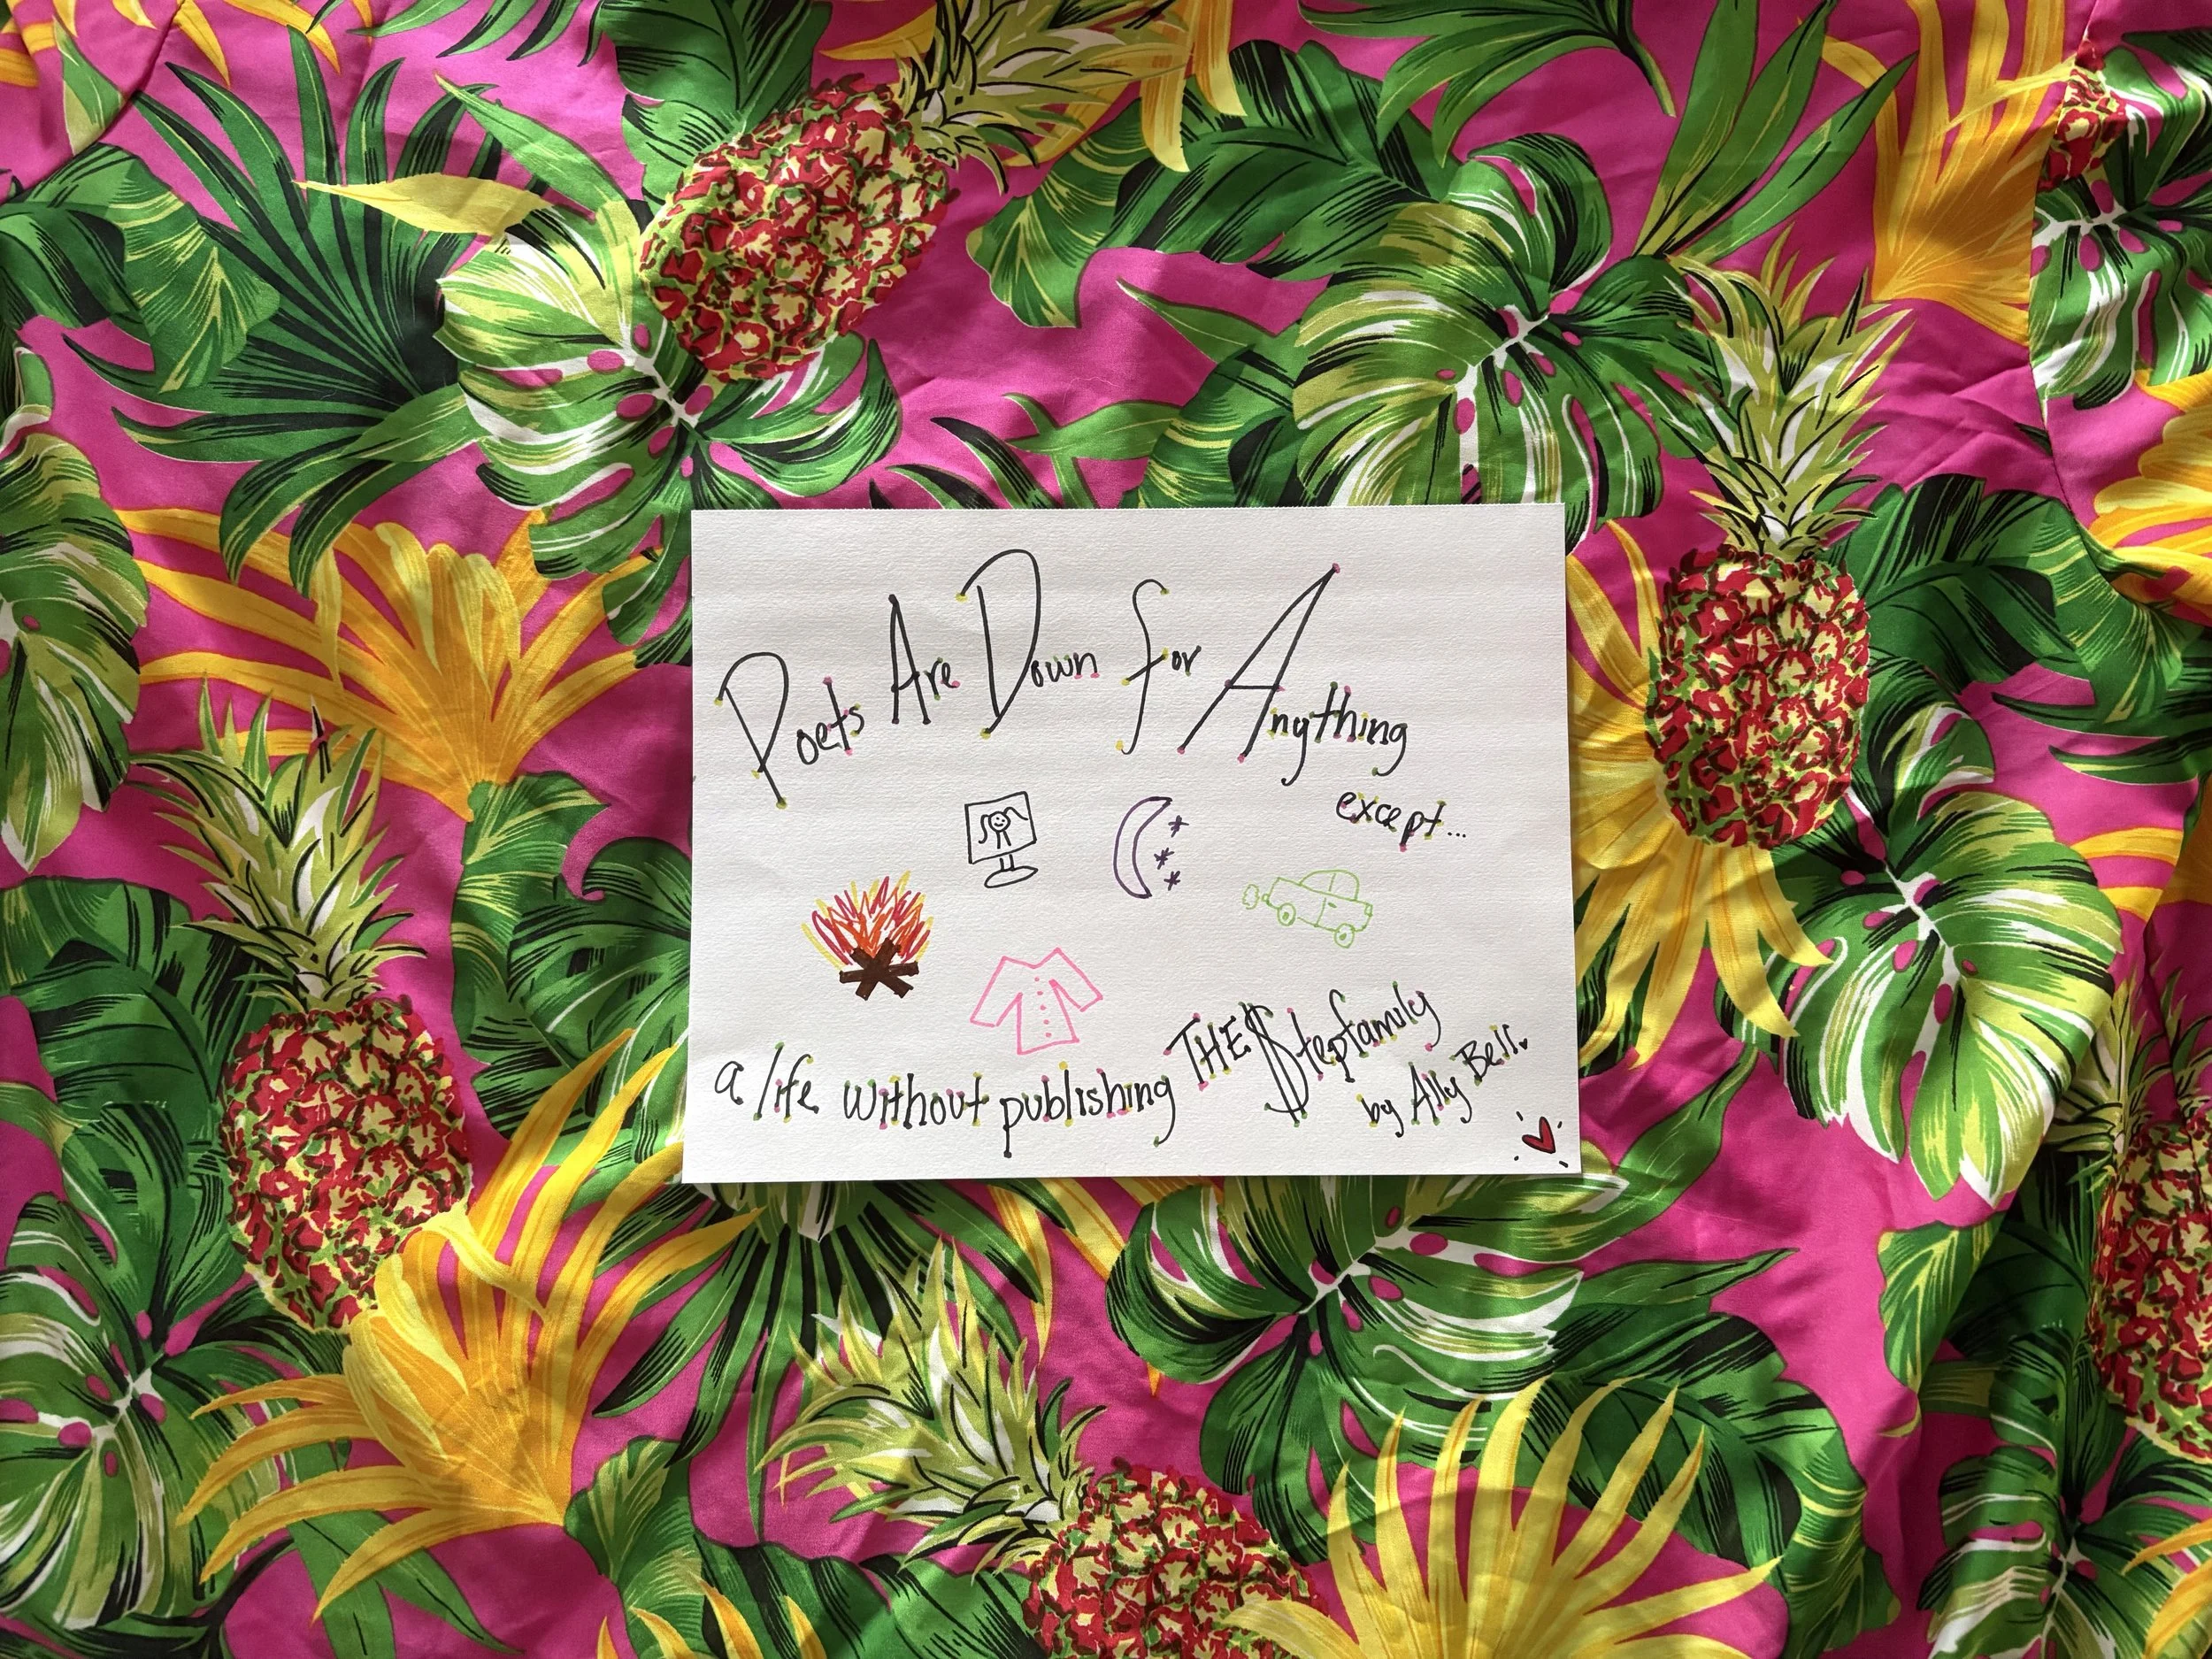 Poets Are Down for Anything
except...
a life without publishing THE $tepfamily
by Ally Bell.